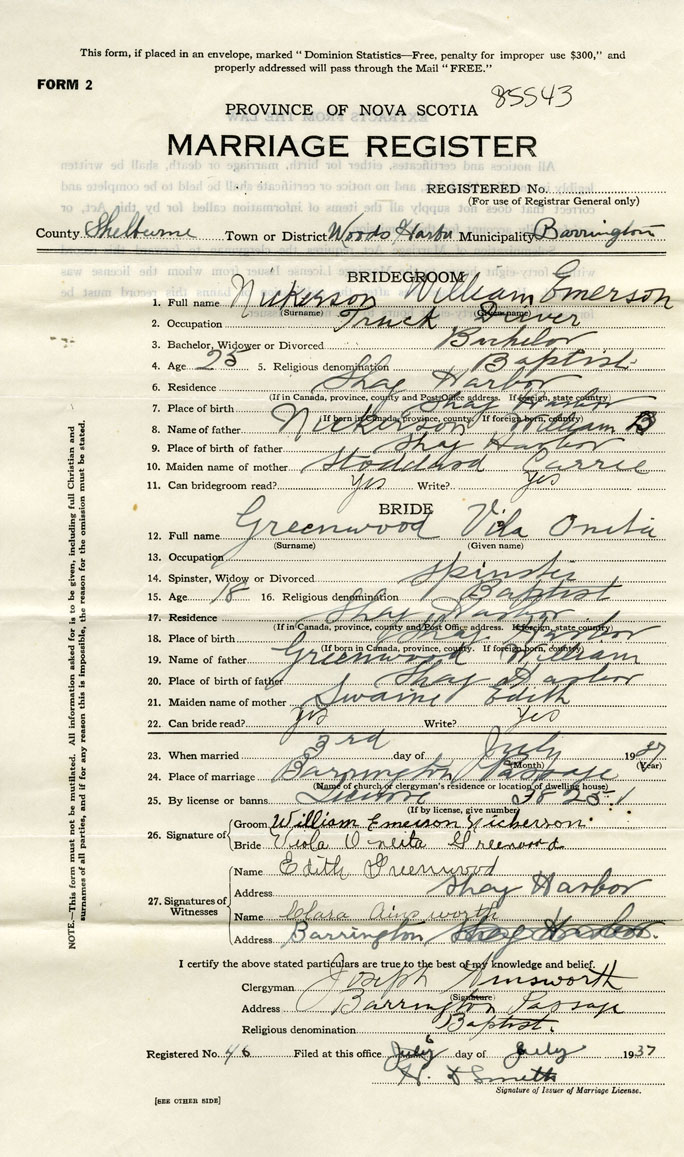 This form, if placed in an envelope, marked "Dominion Statistics—Free, penalty for improper use $300," and
properly addressed will pass through the Mail "FREE."
FORM 2
85543
PROVINCE OF NOVA SCOTIA
MARRIAGE REGISTER
REGISTERED No.
(For use of Registrar General only)
County Shelburne Town or District Woods Harbor Municipality Barrington
BRIDEGROOM
1. Full name Nickerson William Emerson
(Surname) (Given name)
2. Occupation Truck Driver
3. Bachelor, Widower or Divorced Bachelor
4. Age 25 5. Religious denomination Baptist
6. Residence Shag Harbor
(If in Canada, province, county and Post Office address. If foreign, state country)
7. Place of birth Shag Harbor
(If born in Canada, province, county. If foreign born, country)
8. Name of father Nickerson William B
9. Place of birth of father Shag Harbor
10. Maiden name of mother Stoddard Carrie
11. Can bridegroom read? Yes Write? Yes
BRIDE
12. Full name Greenwood Vila Oneita
(Surname) (Given name)
13. Occupation
14. Spinster, Widow or Divorced Spinster
15. Age 18 16. Religious denomination Baptist
17. Residence Shag Harbor
(If in Canada, province, county and Post Office address. If foreign, state country)
18. Place of birth Shag Harbor
(If born in Canada, province, county. If foreign born, country)
19. Name of father Greenwood William
20. Place of birth of father Shag Harbor
21. Maiden name of mother Swaine Edith
22. Can bride read? Yes Write? Yes
23. When married 3rd day of July 1937
(Month) (Year)
24. Place of marriage Barrington Passage
(Name of church or clergyman's residence or location of dwelling house)
25. By license or banns License
(If by license, give number)
26. Signature of Groom William Emerson Nickerson
Bride Viola Oneita Greenwood
Name Edith Greenwood
Address Shag Harbor
27. Signatures of Witnesses
Name Clara Ainsworth
Address Barrington
I certify the above stated particulars are true to the best of my knowledge and belief.
Clergyman Joseph Ainsworth
(Signature)
Address Barrington Passage
Religious denomination Baptist.
Registered No. 46 Filed at this office day of July 1937
H. D Smith
Signature of Issuer of Marriage License.
[SEE OTHER SIDE]
NOTE.—This form must not be mutilated. All information asked for is to be given, including full Christian and
surnames of all parties, and if for any reason this is impossible, the reason for the omission must be stated.